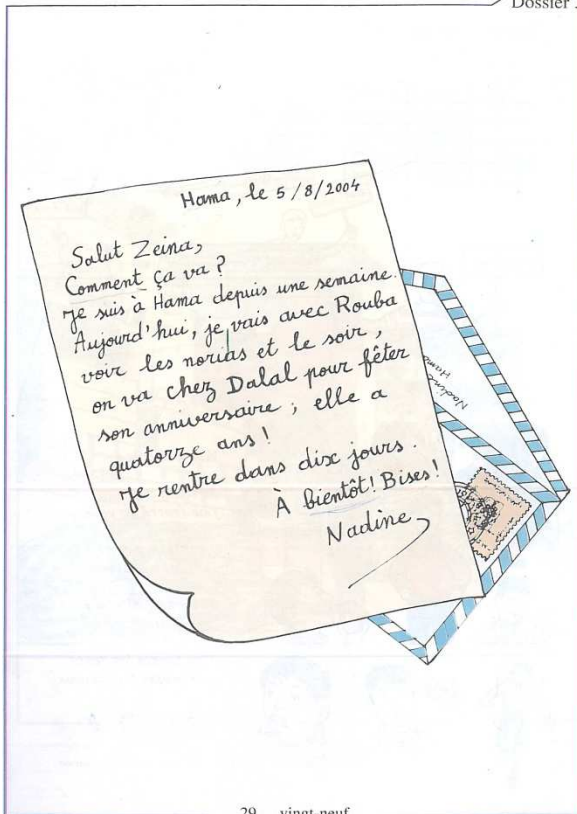 Dossier
Hama, le 5/8/2004
Salut Zeina,
Comment ça va ?
Je suis à Hama depuis une semaine.
Aujourd'hui, je vais avec Rouba
voir les norias et le soir,
on va chez Dalal pour fêter
son anniversaire ; elle a
quatorze ans !
Je rentre dans dix jours.
À bientôt ! Bises !
Nadine
Nadine
Hama
29 vingt-neuf